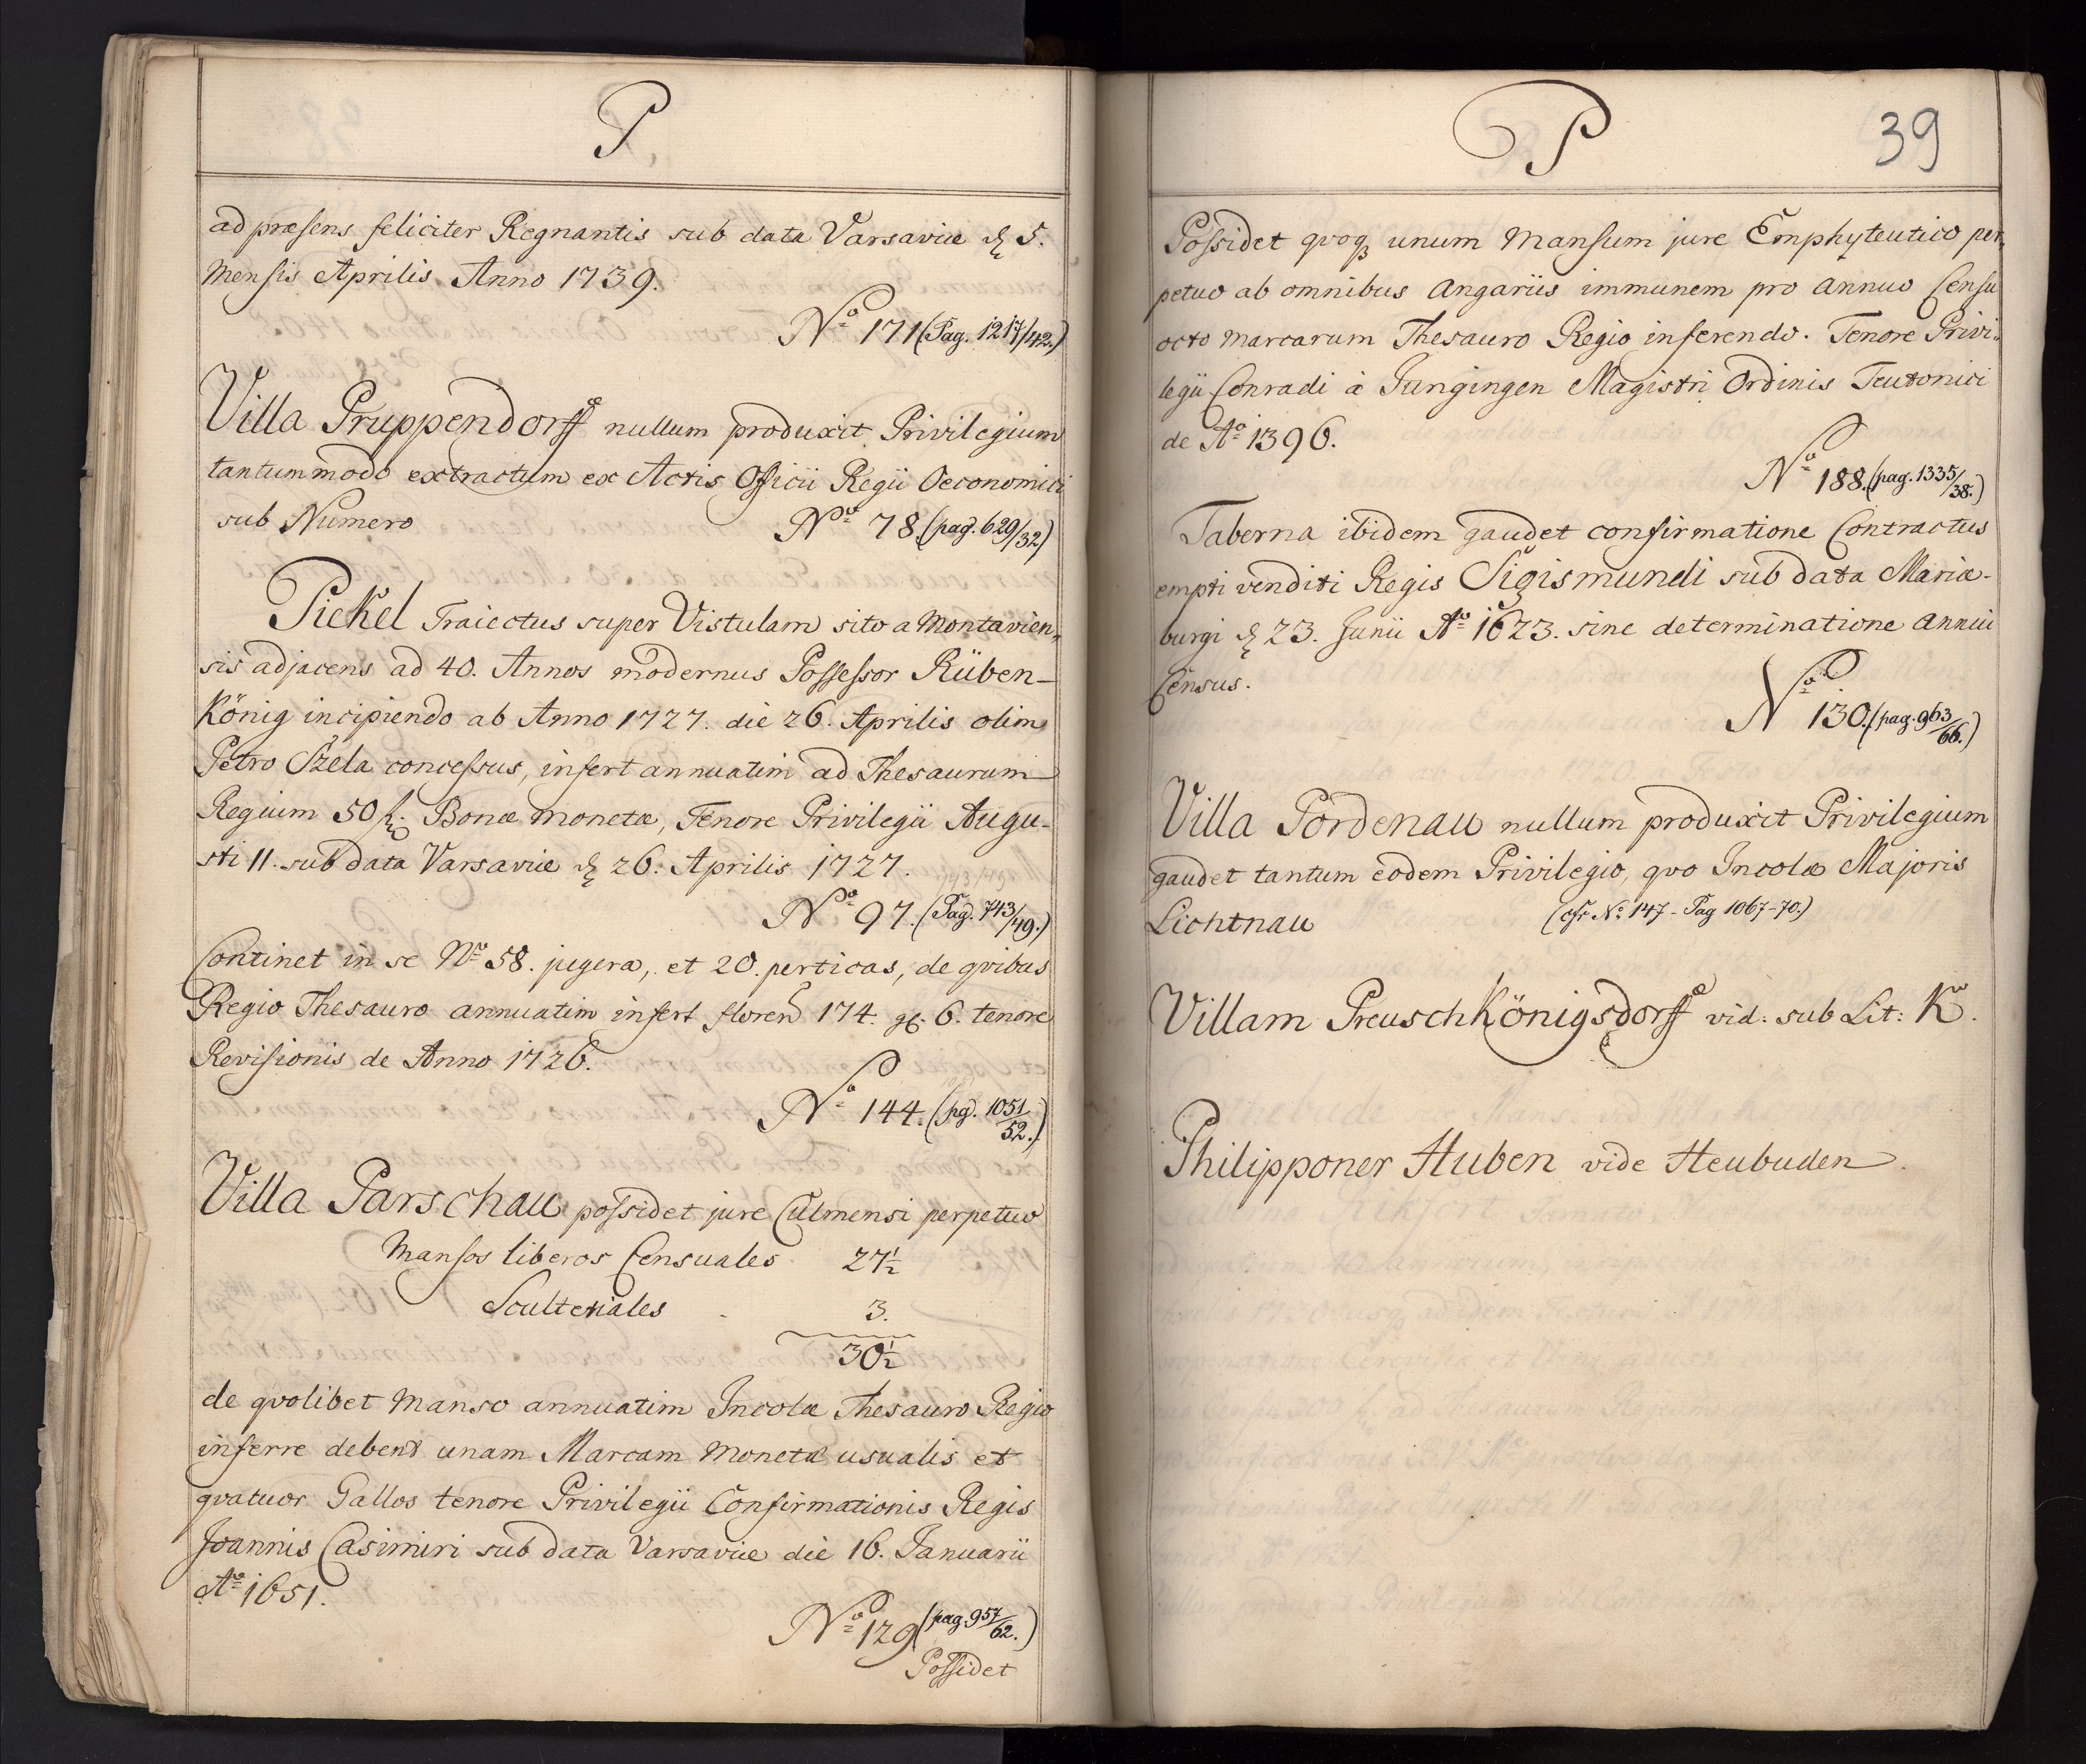 P
ad præsens feliciter Regnantis sub data Varsaviæ d. 5.
Mensis Aprilis Anno 1739.
No 171 (Pag. 1217/42.)
Villa Pruppendorff nullum produxit Privilegium
tantummodo extractum ex Actis Officii Regii Oeconomici
sub Numero No 78. (pag. 629/32)
Pickel Traiectus super Vistulam sito a Montavien=
sis adjacens ad 40. Annos modernus Possessor Rüben-
König incipiendo ab Anno 1727. die 26. Aprilis olim
Petro Szela concessus, infert annuatim ad Thesaurum
Regium 50 fl. Bonæ monetæ, Tenore Privilegii Augu-
sti II. sub data Varsaviæ d. 26. Aprilis 1727.
No 97. (Pag. 743/49.)
Continet in se No 58. jugera, et 20. perticas, de qvibus
Regio Thesauro annuatim infert floren 174. gr. 6. tenore
Revisionis de Anno 1726.
No 144. (pg. 1051/52.)
Villa Parschau possidet jure Culmensi perpetuo
Mansos liberos Censuales 27½
Scultetiales 3.
30½
de qvolibet Manso annuatim Incolæ Thesauro Regio
inferre debent unam Marcam Monetæ usualis et
qvatuor Gallos tenore Privilegii Confirmationis Regis
Joannis Casimiri sub data Varsaviæ die 16. Januarii
Ao 1651.
No 129 (pag. 957/62.)
Possidet
P
39
Possidet qvoq unum Mansum jure Emphyteutico per=
petuo ab omnibus Angariis immunem pro annuo Censu
octo marcarum Thesauro Regio inferendo. Tenore Privi=
legii Conradi à Jungingen Magistri Ordinis Teutonici
de Ao 1396.
No 188. (pag. 1335/38.)
Taberna ibidem gaudet confirmatione Contractus
empti venditi Regis Sigismundi sub data Mariæ-
burgi d. 23. Junii Ao 1623. sine determinatione annui
Census.
No 130. (pag. 963/66.)
Villa Pordenau nullum produxit Privilegium
gaudet tantum eodem Privilegio, qvo Incolæ Majoris
Lichtnau (cfr No 147 - Pag 1067-70.)
Villam PreuschKönigsdorff vid: sub Lit: K.
Philipponer Huben vide Heubuden.